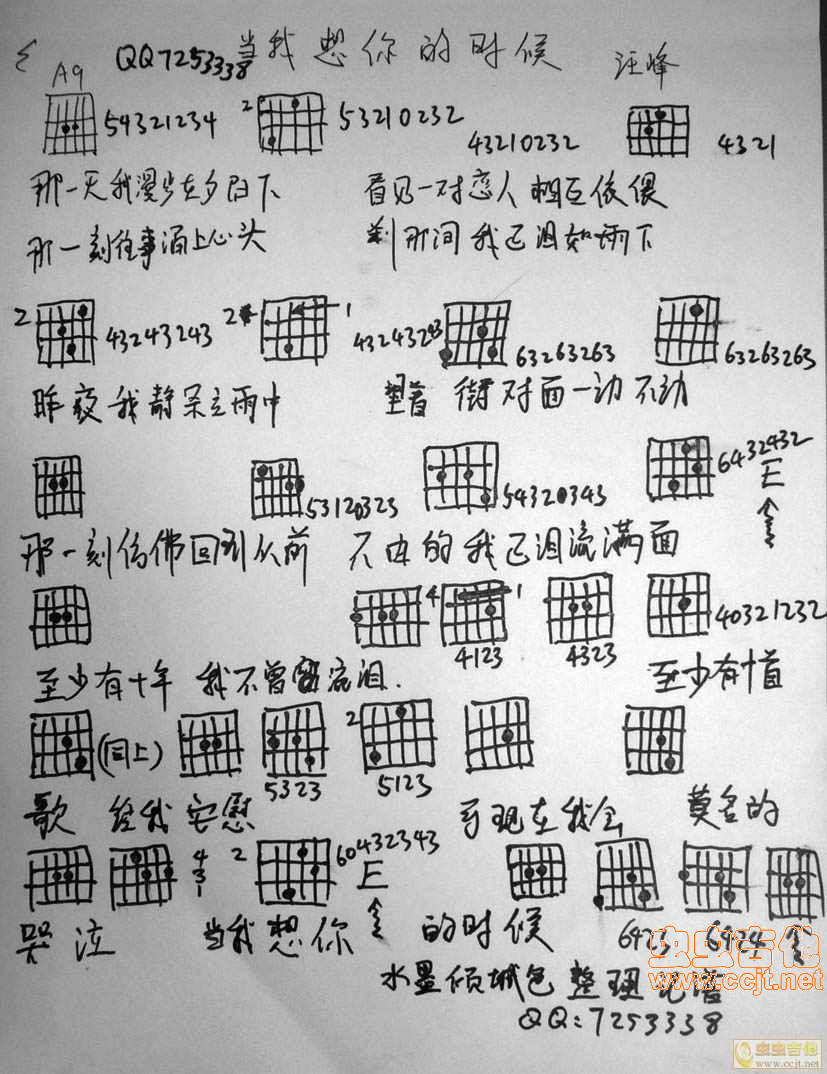 QQ7253338 当我想你的时候 汪峰
A9
54321234 2 53210232 43210232 4321
那一天我漫步在夕阳下 看见一对恋人相互依偎
那一刻往事涌上心头 刹那间我已泪如雨下
2 43243243 2 1 43243243 63263263 63263263
昨夜我静呆立雨中 望着街对面一动不动
53120323 54320343 6432432
E
那一刻仿佛回到从前 不由的我已泪流满面
4 1 4123 4323 40321232
至少有十年 我不曾流泪. 至少有十首
(同上) 5323 2 5123
歌 给我安慰 可现在我会 莫名的
431 2 60432343
E
哭泣 当我想你 的时候 6423 6424
水墨倾城色 整理记谱
QQ:7253338
虫虫吉他
www.ccjt.net
虫虫吉他
www.ccjt.net